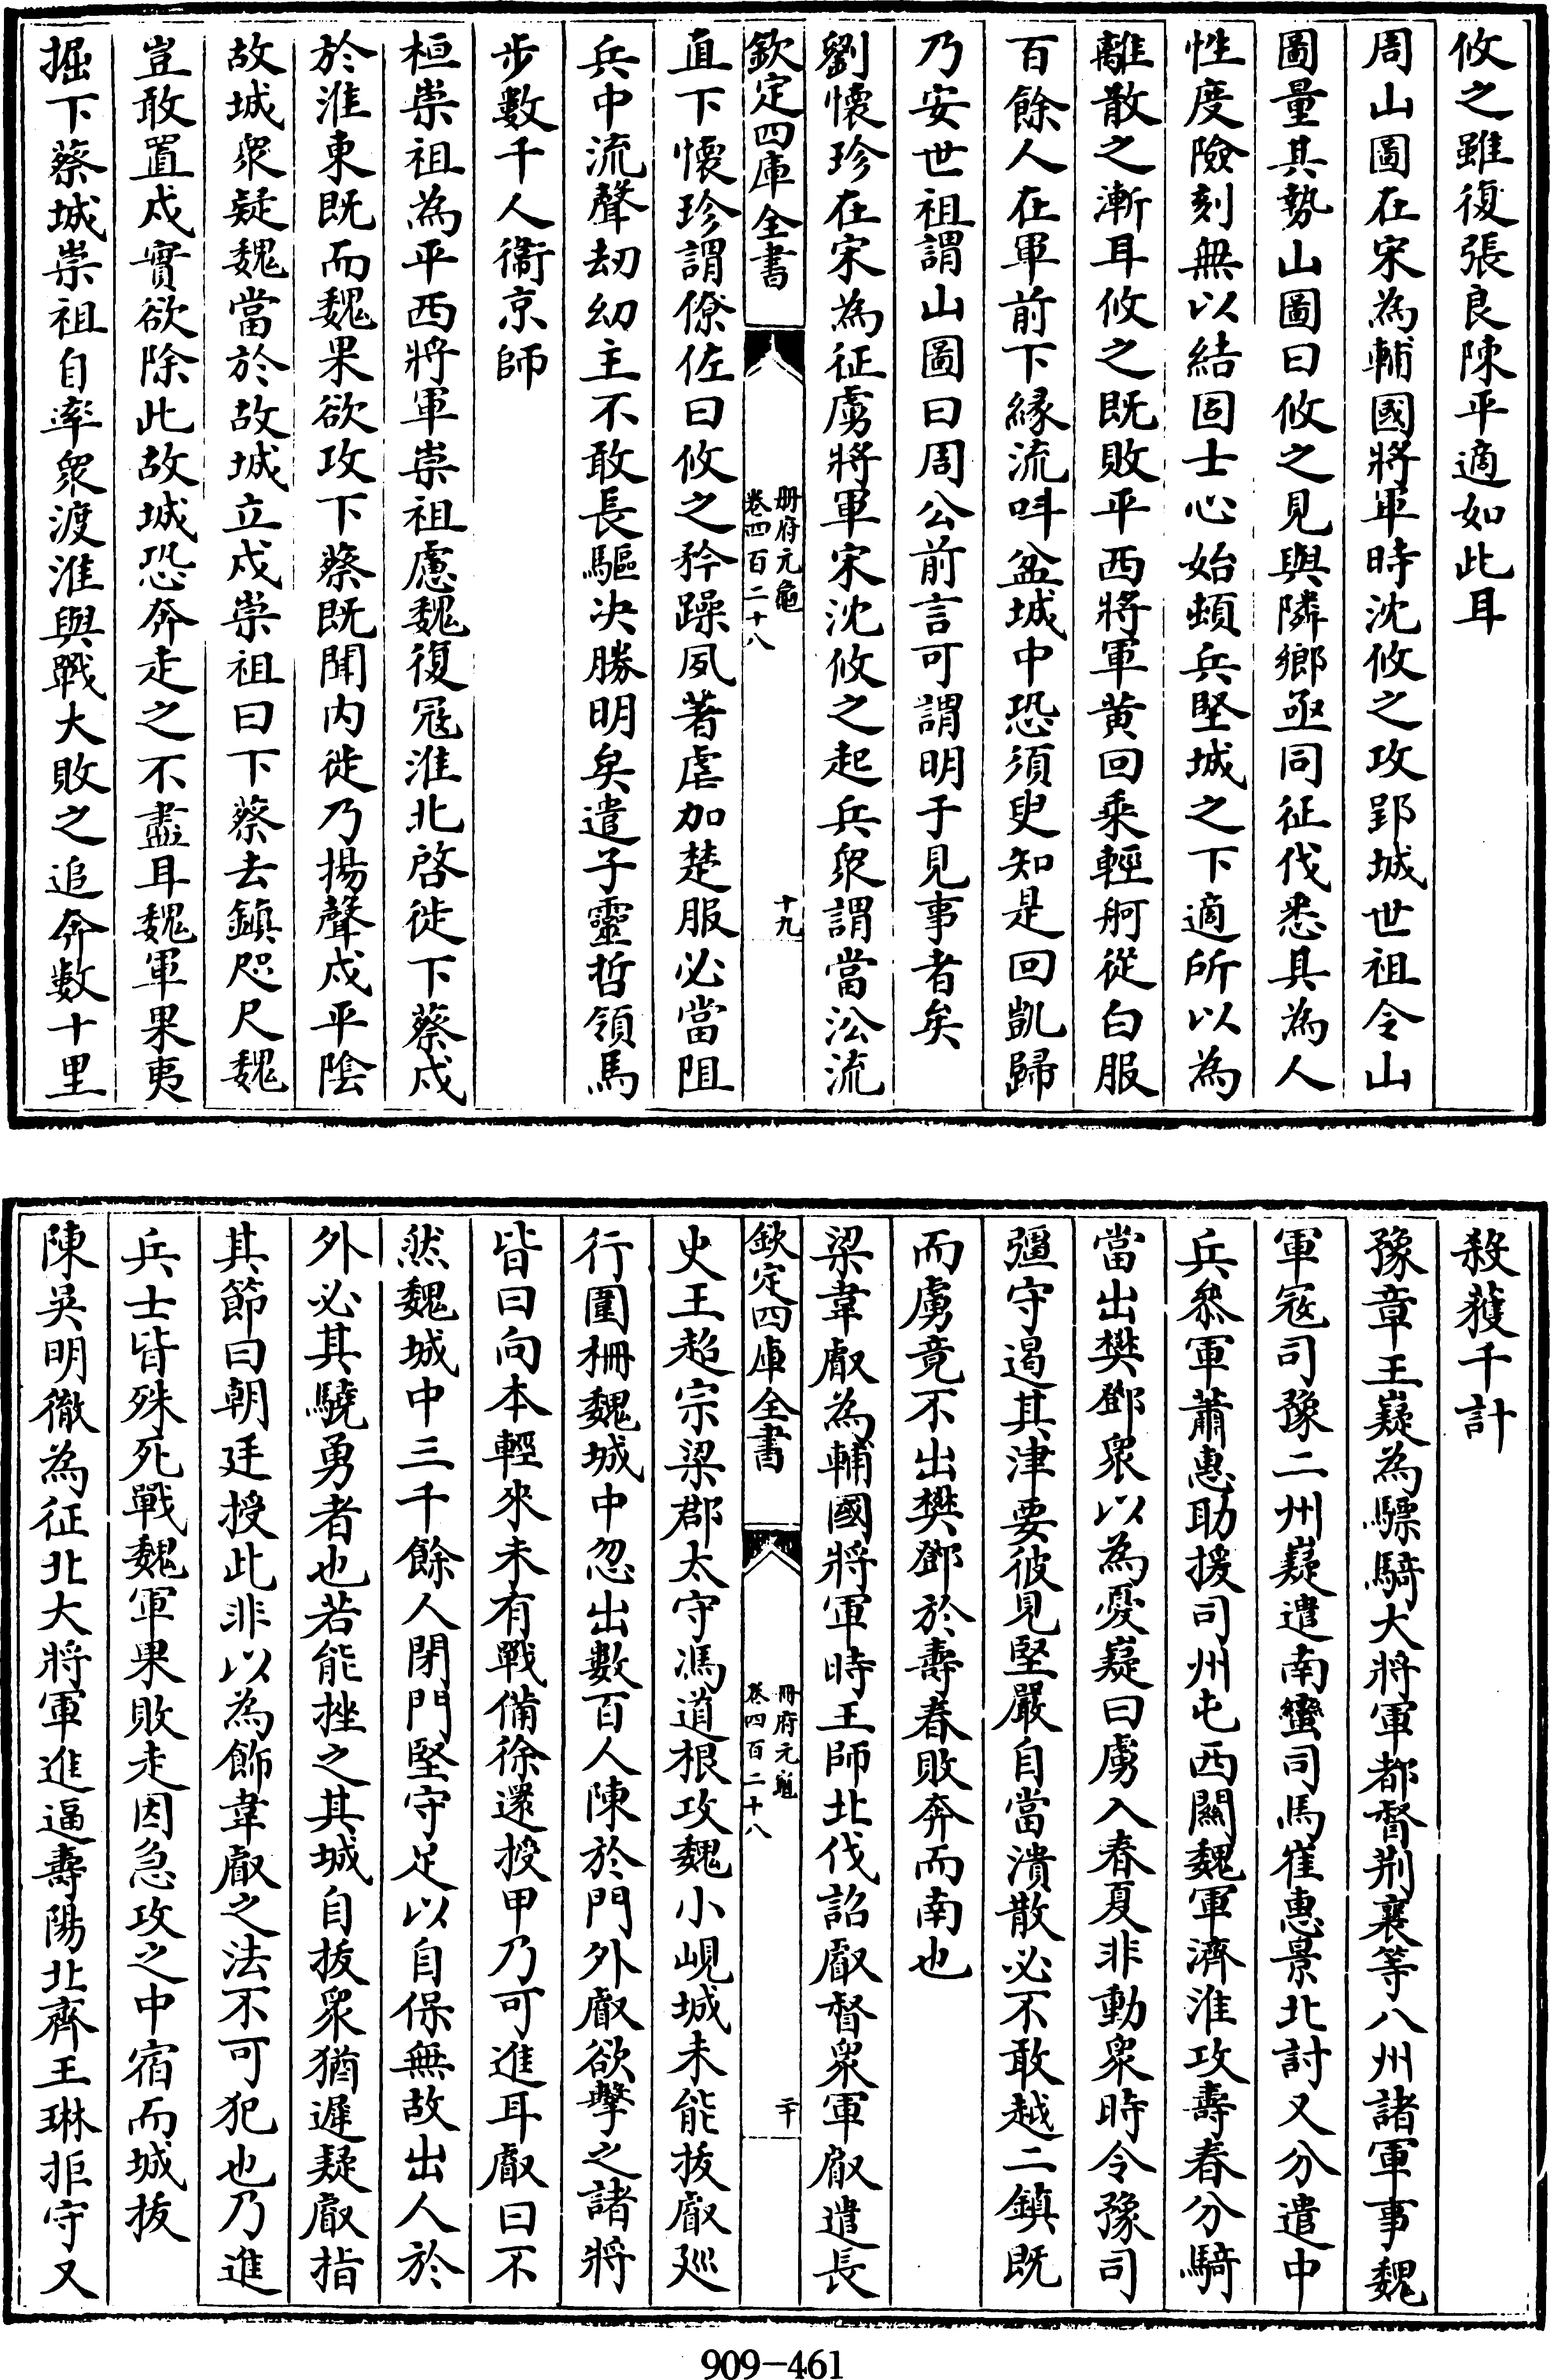 攸之雖復張良陳平適如此耳
周山圖在宋為輔國將軍時沈攸之攻郢城世祖令山
圖量其勢山圖曰攸之見與隣鄉亟同征伐悉具為人
性度險刻無以結固士心始頓兵堅城之下適所以為
離散之漸耳攸之既敗平西將軍黄回乘輕舸從白服
百餘人在軍前下緣流呌盆城中恐須臾知是回凱歸
乃安世祖謂山圖曰周公前言可謂明于見事者矣
劉懐珍在宋為征虜將軍宋沈攸之起兵衆謂當㳂流
欽定四庫全書
册府元龜
卷四百二十八
十九
直下懐珍謂僚佐曰攸之矜躁夙著虐加楚服必當阻
兵中流聲刼幼主不敢長驅决勝明矣遣子靈哲領馬
步數千人衞京師
桓崇祖為平西將軍崇祖慮魏復冦淮北啓徙下蔡戍
於淮東既而魏果欲攻下蔡既聞内徙乃揚聲戍平隂
故城衆疑魏當於故城立戍崇祖曰下蔡去鎮咫尺魏
豈敢置戍實欲除此故城恐奔走之不盡耳魏軍果夷
掘下蔡城崇祖自率衆渡淮與戰大敗之追奔數十里
殺獲千計
豫章王嶷為驃騎大將軍都督荆襄等八州諸軍事魏
軍冦司豫二州嶷遣南蠻司馬崔惠景北討又分遣中
兵叅軍蕭惠助援司州屯西關魏軍濟淮攻壽春分騎
當出樊鄧衆以為憂嶷曰虜入春夏非動衆時令豫司
彊守遏其津要彼見堅嚴自當潰散必不敢越二鎮既
而虜竟不出樊鄧於壽春敗奔而南也
梁韋叡為輔國將軍時王師北伐詔叡督衆軍叡遣長
欽定四庫全書
册府元龜
卷四百二十八
二十
史王超宗梁郡太守馮道根攻魏小峴城未能拔叡廵
行圍柵魏城中忽出數百人陳於門外叡欲擊之諸將
皆曰向本輕來未有戰備徐還授甲乃可進耳叡曰不
然魏城中三千餘人閉門堅守足以自保無故出人於
外必其驍勇者也若能挫之其城自拔衆猶遲疑叡指
其節曰朝廷授此非以為飾韋叡之法不可犯也乃進
兵士皆殊死戰魏軍果敗走因急攻之中宿而城拔
陳吳明徹為征北大將軍進逼壽陽北齊王琳拒守又
909-461